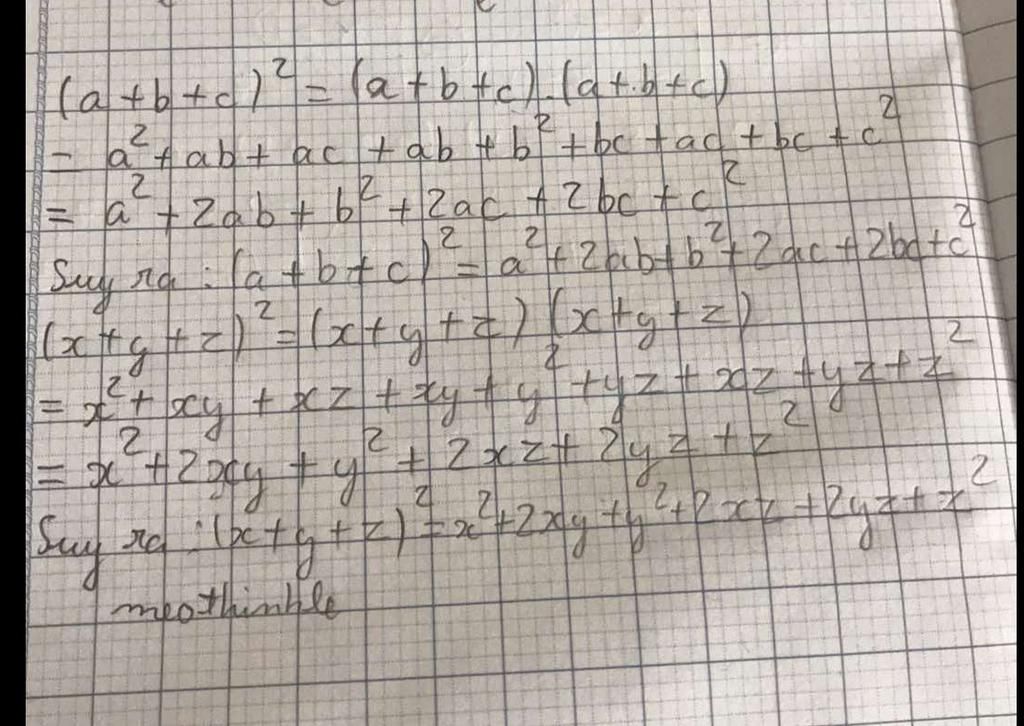 (a+b+c)² = (a+b+c).(a+b+c)
= a² + ab + ac + ab + b² + bc + ac + bc + c²
= a² + 2ab + b² + 2ac + 2bc + c²
Suy ra : (a+b+c)² = a² + 2ab + b² + 2ac + 2bc + c²
(x+y+z)² = (x+y+z)(x+y+z)
= x² + xy + xz + xy + y² + yz + xz + yz + z²
= x² + 2xy + y² + 2xz + 2yz + z²
Suy ra : (x+y+z)² = x² + 2xy + y² + 2xz + 2yz + z²